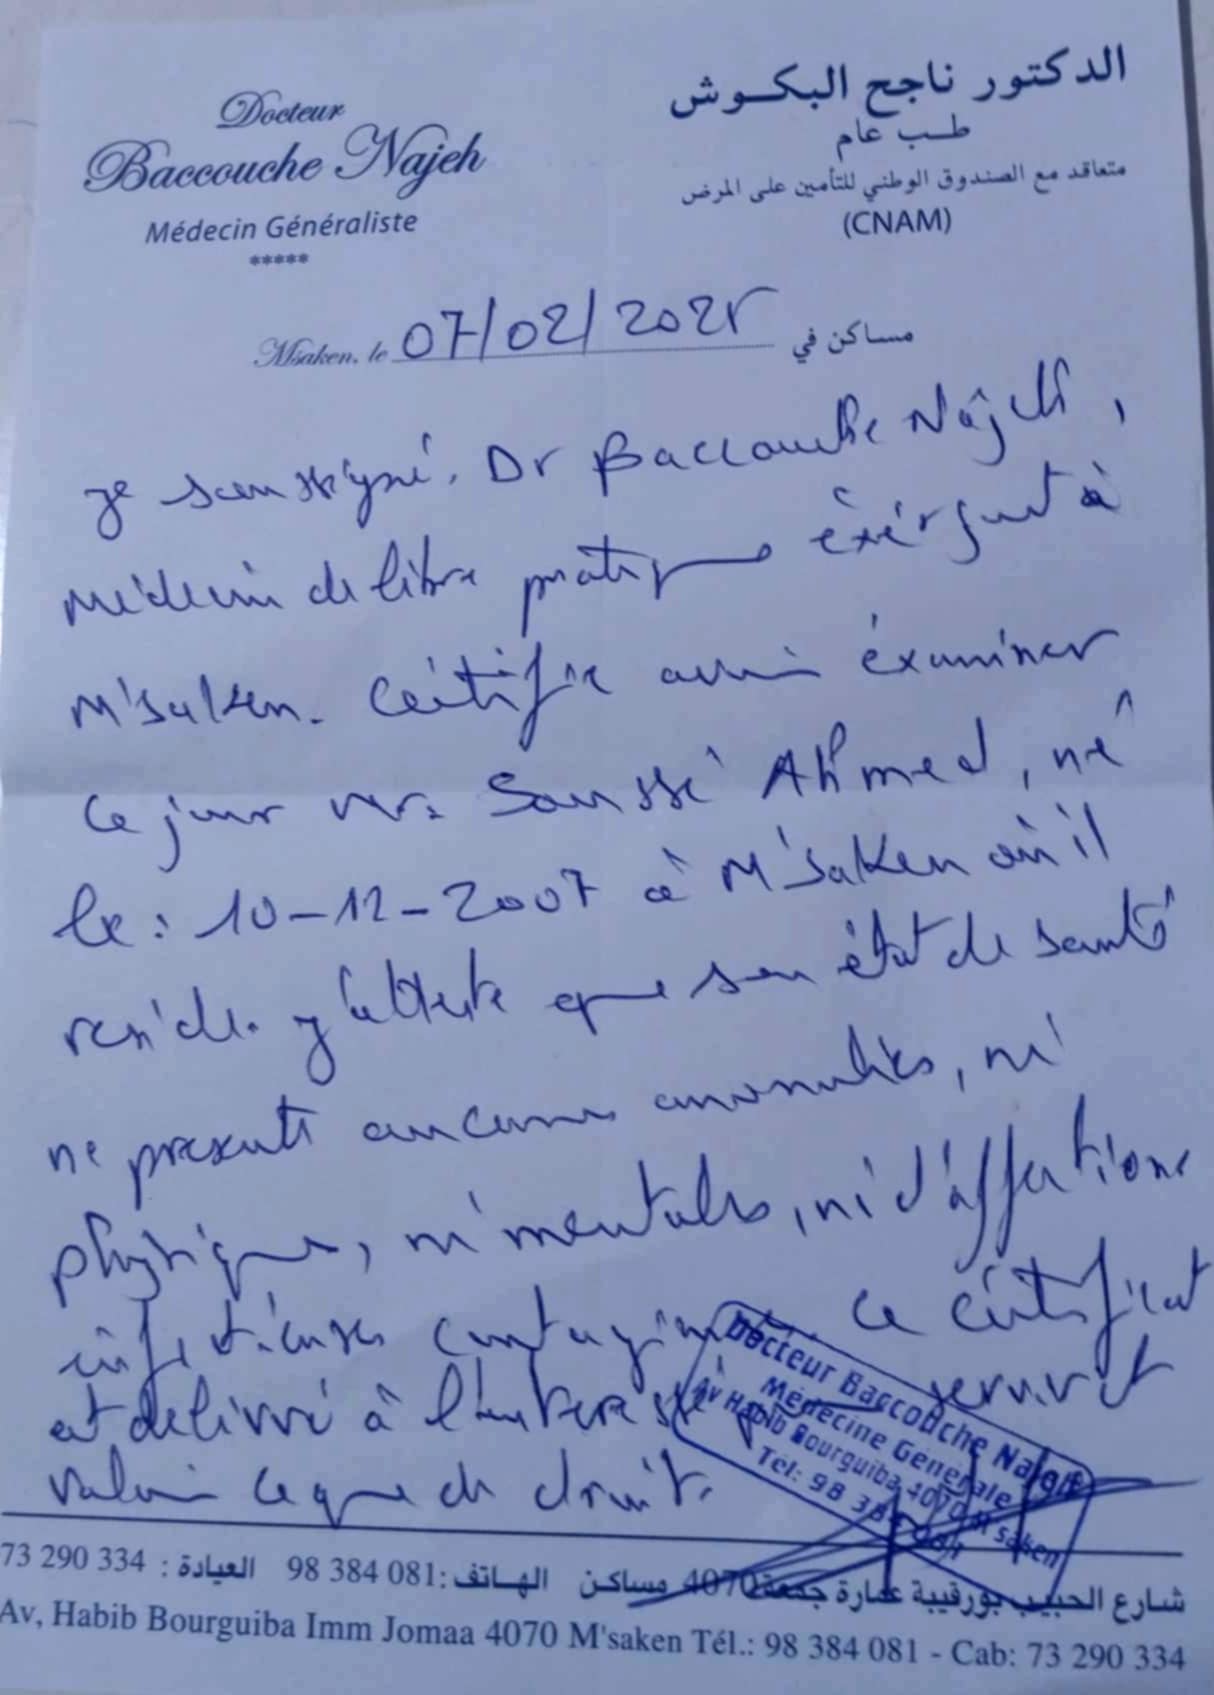 Docteur
Baccouche Najeh
Médecin Généraliste
*****
الدكتور ناجح البكوش
طب عام
متعاقد مع الصندوق الوطني للتأمين على المرض
(CNAM)
Msaken, le 07/02/2025 مساكن في
Je soussigné, Dr Baccouche Najeh,
Médecin de libre pratique éxérçant à
M'saken. Cértifie avoir éxaminer
ce jour Mr: Soussi Ahmed, né
le: 10-12-2007 à M'saken où il
réside. J'atteste que son état de santé
ne présente aucunes anomalies, ni
physiques, ni mentales, ni d'affections
infectieuses contagieuses. Ce cértificat
est délivré à l'intéréssé servir
valoir ce que de droit.
Docteur Baccouche Najeh
Médecine Générale
Av Habib Bourguiba 4070 M'saken
Tel: 98 384 081
شارع الحبيب بورقيبة عمارة جمعة 4070 مساكن الهاتف: 98 384 081 العيادة : 73 290 334
Av, Habib Bourguiba Imm Jomaa 4070 M'saken Tél.: 98 384 081 - Cab: 73 290 334